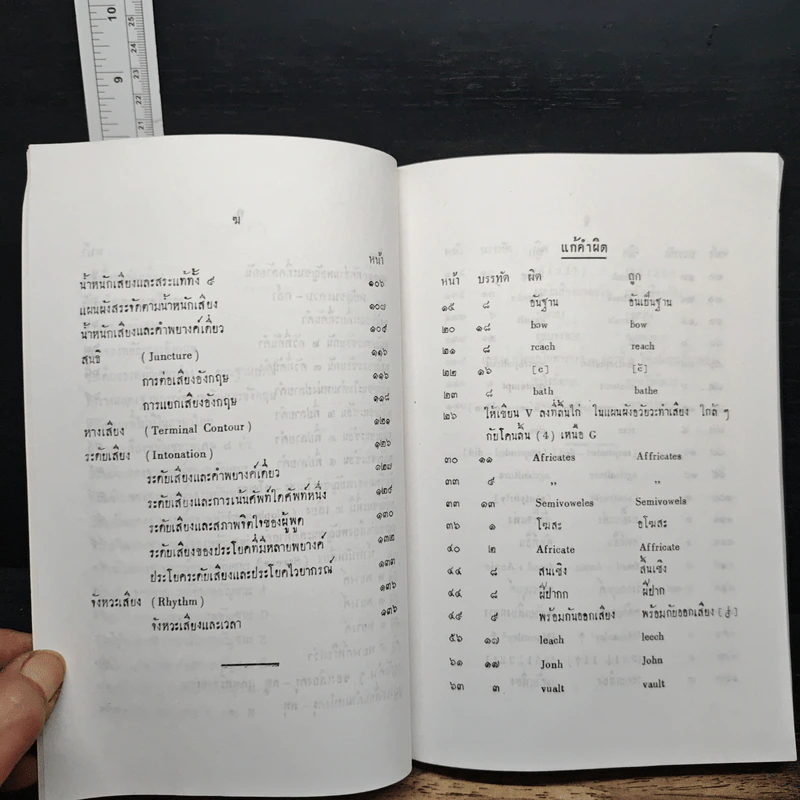 10
9
25
24
23
22
21
ฆ
หน้า
น้ำหนักเสียงและสระแท้ทั้ง ๙ ๑๐๖
แผนผังสระจัดตามน้ำหนักเสียง ๑๐๘
น้ำหนักเสียงและคำพยางค์เดี่ยว ๑๐๙
สนธิ (Juncture) ๑๑๖
การต่อเสียงอังกฤษ ๑๑๖
การแยกเสียงอังกฤษ ๑๑๘
หางเสียง (Terminal Contour) ๑๒๑
ระดับเสียง (Intonation) ๑๒๖
ระดับเสียงและคำพยางค์เดี่ยว ๑๒๘
ระดับเสียงและการเน้นศัพท์ใดศัพท์หนึ่ง ๑๒๙
ระดับเสียงและสภาพจิตใจของผู้พูด ๑๓๐
ระดับเสียงของประโยคที่มีหลายพยางค์ ๑๓๒
ประโยคระดับเสียงและประโยคไวยากรณ์ ๑๓๓
จังหวะเสียง (Rhythm) ๑๓๖
จังหวะเสียงและเวลา ๑๓๖
แก้คำผิด
หน้า บรรทัด ผิด ถูก
๑๕ ๘ อันฐาน อันเป็นฐาน
๒๐ ๑๘ bow bow
๒๑ ๘ rcach reach
๒๒ ๑๖
๒๓ ๘ bath bathe
๒๖ ให้เขียน V ลงที่ลิ้นไก่ ในแผนผังอวัยวะทำเสียง ใกล้ ๆ
กับโคนลิ้น (4) เหนือ G
๓๐ ๑๑ Africates Affricates
๓๓ ๙ ,, ,,
๓๓ ๑๓ Semivoweles Semivowels
๓๖ ๑ โฆสะ อโฆสะ
๔๐ ๒ Africate Affricate
๔๔ ๘ สนเชิง สิ้นเชิง
๔๔ ๘ ผีปากก ผีปาก
๔๙ ๙ พร้อมกันออกเสียง พร้อมกับออกเสียง
๕๖ ๑๗ leach leech
๖๑ ๑๗ Jonh John
๖๓ ๓ vualt vault